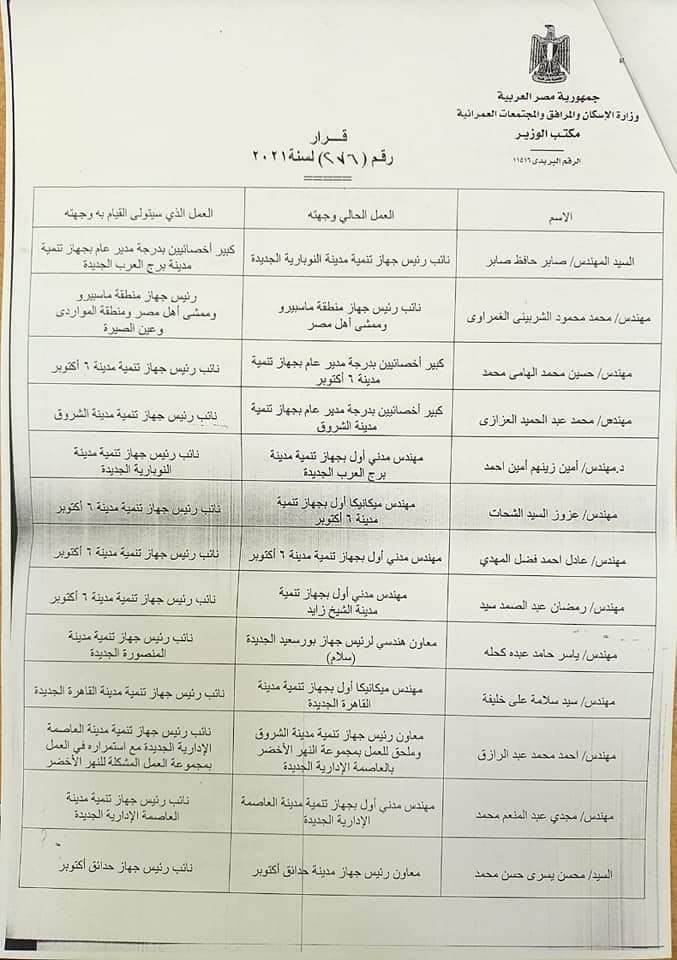 جمهورية مصر العربية
وزارة الإسكان والمرافق والمجتمعات العمرانية
مكتب الوزير
الرقم البريدى ١١٥١٦
قـــرار
رقم (٢٧٦) لسنة ٢٠٢١
الاسم
العمل الحالي وجهته
العمل الذي سيتولى القيام به وجهته
السيد المهندس/ صابر حافظ صابر
نائب رئيس جهاز تنمية مدينة النوبارية الجديدة
كبير أخصائيين بدرجة مدير عام بجهاز تنمية
مدينة برج العرب الجديدة
مهندس/ محمد محمود الشربينى الغمراوى
نائب رئيس جهاز منطقة ماسبيرو
وممشى أهل مصر
رئيس جهاز منطقة ماسبيرو
وممشى أهل مصر ومنطقة المواردى
وعين الصيرة
مهندس/ حسين محمد الهامى محمد
كبير أخصائيين بدرجة مدير عام بجهاز تنمية
مدينة ٦ أكتوبر
نائب رئيس جهاز تنمية مدينة ٦ أكتوبر
مهندس/ محمد عبد الحميد العزازى
كبير أخصائيين بدرجة مدير عام بجهاز تنمية
مدينة الشروق
نائب رئيس جهاز تنمية مدينة الشروق
د.مهندس/ أمين زينهم أمين احمد
مهندس مدني أول بجهاز تنمية مدينة
برج العرب الجديدة
نائب رئيس جهاز تنمية مدينة
النوبارية الجديدة
مهندس/ عزوز السيد الشحات
مهندس ميكانيكا أول بجهاز تنمية
مدينة ٦ أكتوبر
نائب رئيس جهاز تنمية مدينة ٦ أكتوبر
مهندس/ عادل احمد فضل المهدي
مهندس مدني أول بجهاز تنمية مدينة ٦ أكتوبر
نائب رئيس جهاز تنمية مدينة ٦ أكتوبر
مهندس/ رمضان عبد الصمد سيد
مهندس مدني أول بجهاز تنمية
مدينة الشيخ زايد
نائب رئيس جهاز تنمية مدينة ٦ أكتوبر
مهندس/ ياسر حامد عبده كحله
معاون هندسي لرئيس جهاز بورسعيد الجديدة
(سلام)
نائب رئيس جهاز تنمية مدينة
المنصورة الجديدة
مهندس/ سيد سلامة على خليفة
مهندس ميكانيكا أول بجهاز تنمية مدينة
القاهرة الجديدة
نائب رئيس جهاز تنمية مدينة القاهرة الجديدة
مهندس/ احمد محمد عبد الرازق
معاون رئيس جهاز تنمية مدينة الشروق
وملحق للعمل بمجموعة النهر الأخضر
بالعاصمة الإدارية الجديدة
نائب رئيس جهاز تنمية مدينة العاصمة
الإدارية الجديدة مع استمراره في العمل
بمجموعة العمل المشكلة للنهر الأخضر
مهندس/ مجدي عبد المنعم محمد
مهندس مدني أول بجهاز تنمية مدينة العاصمة
الإدارية الجديدة
نائب رئيس جهاز تنمية مدينة
العاصمة الإدارية الجديدة
السيد/ محسن يسرى حسن محمد
معاون رئيس جهاز مدينة حدائق أكتوبر
نائب رئيس جهاز حدائق أكتوبر